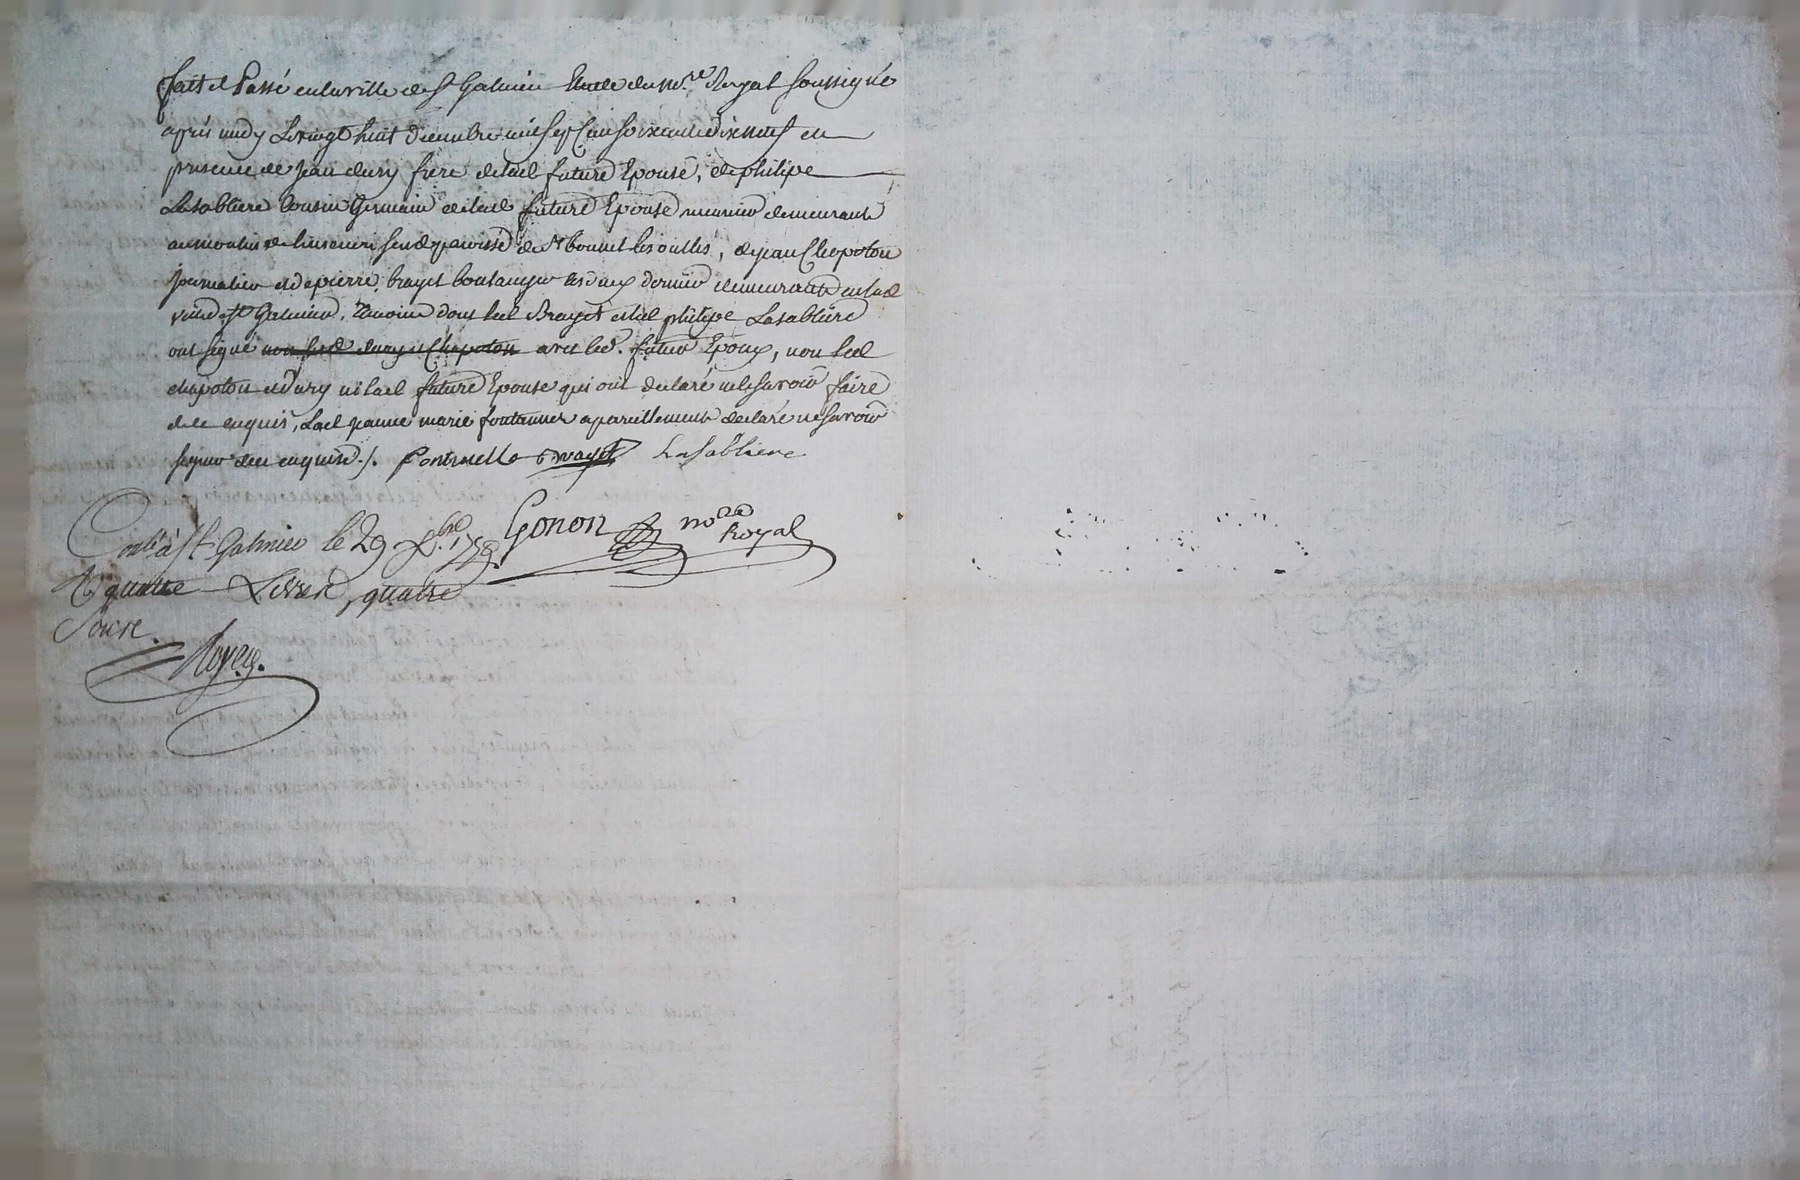 fait et Passé en la ville de St Galmier Etude du no.re Royal soussigné
après midy Le vingt huit Decembre mil sept Cens soixante dix neuf en
presence de Jean dury frere de lad future Epouse, de philipe
Lasabliere Cousin Germain de lad future Epouse meunier demeurant
au moulin de paroisse de St bonnet les oulles, de jean Chapoton
journalier et de pierre brayet boulanger les deux dernier demeurants en lad
ville de St Galmier, Temoins dont led Brayet et led philipe Lasabliere
ont signé non led dury et Chapoton avec led. futur Epoux, non led
chapoton et dury ni lad future Epouse qui ont declaré ne le savoir faire
de ce enquis, Lad jeanne marie fontannes a pareillement declaré ne savoir
signer de ce enquise ./. brayet Lasabliere
Conlé à St Galmier le 29 Xbre 1779. Gonon no.re Royal
R quatre Livres, quatre
Sous.
Royer.